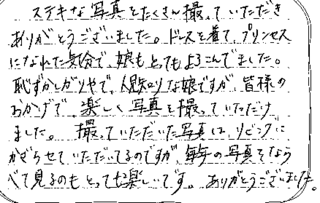 ステキな写真をたくさん撮っていただき
ありがとうございました。ドレスを着て、プリンセス
になれた気分で、娘もとってもよろこんでました。
恥ずかしがりやで、人見知りな娘ですが、皆様の
おかげで、楽しく写真を撮っていただけ
ました。撮っていただいた写真は、リビングに
かざらせていただいてるのですが、毎年の写真をなら
べて見るのもとっても楽しいです。ありがとうございました。